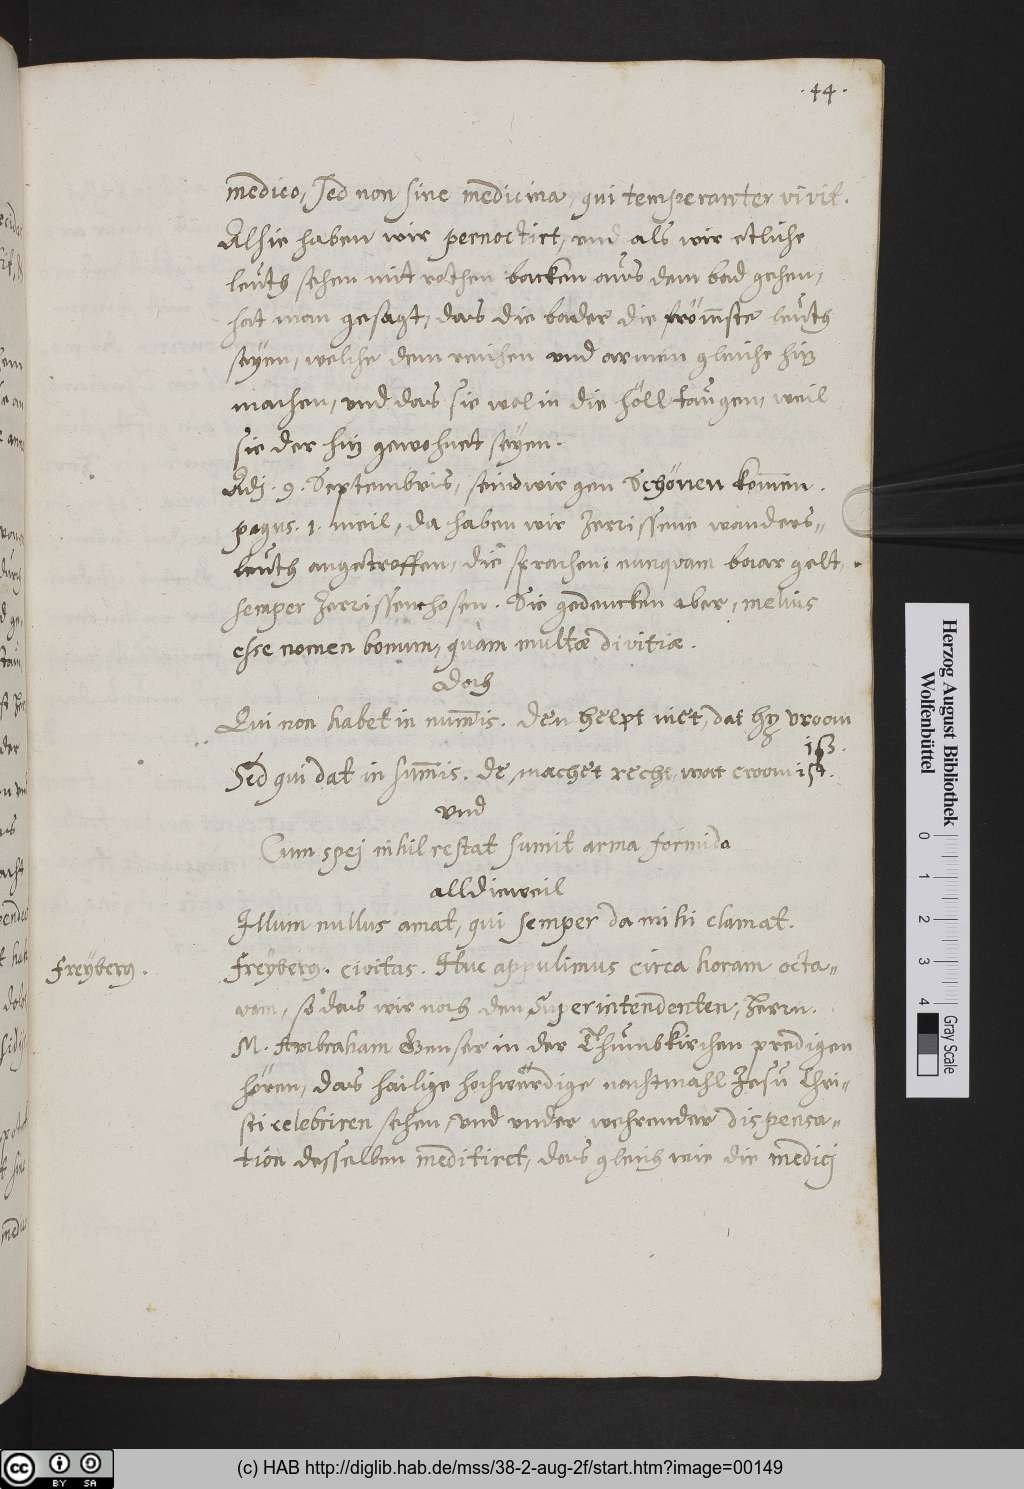 .44.
medico, sed non sine medicina, qui temperanter vivit.
Alhie haben wir pernoctirt, und als wir etliche
leüth sehen mit rothen backen auß dem bad gehen,
hat man gesagt, das die bader die frömste leüth
seyen, welche dem reichen und armen gleiche hitz
machen, und das sie wol in die höll taugen, weil
sie der hitz gewohnet seyen.
Adj. 9. Septembris, seind wir gen Schönen komen.
pagus. 1. meil, da haben wir zerrissene wanders=
leüth angetroffen, die sprachen: nunquam baar gelt,
semper zerrissen hosen. Sie gedencken aber, melius
esse nomen bonum, quàm multæ divitiæ.
Doch
Qui non habet in nummis. den helpt niet, dat hy vroom
iß.
Sed qui dat in summis. de machet recht, wat croom ist.
und
Cum spej nihil restat sumit arma formido
alldieweil
Illum nullus amat, qui semper da mihi clamat.
Freyberg.
Freyberg. civitas. Huc appulimus circa horam octa=
vam, so das wir noch den Superintendenten, Herrn.
M. Ambraham Genser in der Thumbkirchen predigen
hören, das hailige hochwürdige nachtmahl Jesu Chri=
sti celebriren sehen, und under wehrender dispensa=
tion desselben meditirt, das gleich wie die medicj
Herzog August Bibliothek
Wolfenbüttel
0 1 2 3 4
Gray Scale
cc BY SA
(c) HAB http://diglib.hab.de/mss/38-2-aug-2f/start.htm?image=00149